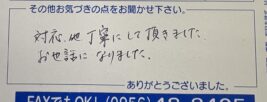 その他お気づきの点をお聞かせ下さい。
対応、他丁寧にして頂きました。
お世話になりました。
ありがとうございました。
FAXでもOK! (0856)